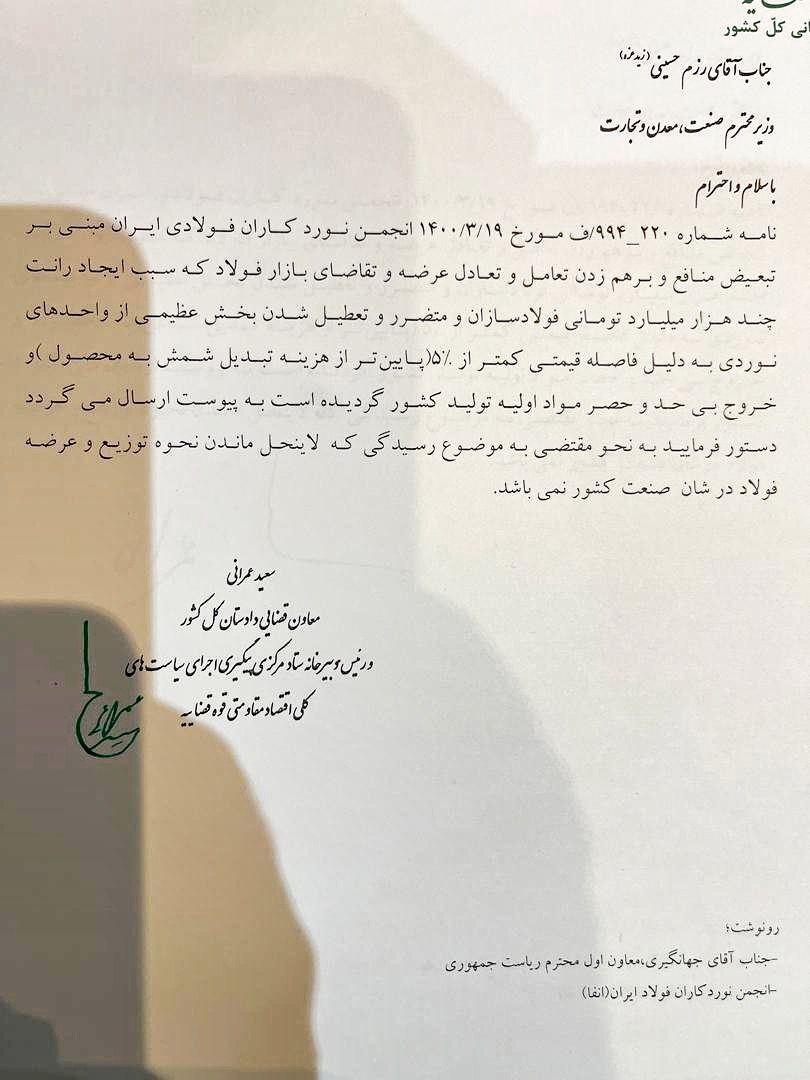 کل کشور
جناب آقای رزم حسینی (زید عزه)
وزیر محترم صنعت، معدن و تجارت
با سلام و احترام
نامه شماره ۲۲۰_۹۹۴/ف مورخ ۱۴۰۰/۳/۱۹ انجمن نورد کاران فولادی ایران مبنی بر
تبعیض منافع و برهم زدن تعامل و تعادل عرضه و تقاضای بازار فولاد که سبب ایجاد رانت
چند هزار میلیارد تومانی فولادسازان و متضرر و تعطیل شدن بخش عظیمی از واحدهای
نوردی به دلیل فاصله قیمتی کمتر از ۵٪(پایین‌تر از هزینه تبدیل شمش به محصول )و
خروج بی حد و حصر مواد اولیه تولید کشور گردیده است به پیوست ارسال می گردد
دستور فرمایید به نحو مقتضی به موضوع رسیدگی که لاینحل ماندن نحوه توزیع و عرضه
فولاد در شان صنعت کشور نمی باشد.
سعید عمرانی
معاون قضایی دادستان کل کشور
و رئیس دبیرخانه ستاد مرکزی پیگیری اجرای سیاست های
کلی اقتصاد مقاومتی قوه قضاییه
رونوشت؛
-جناب آقای جهانگیری،معاون اول محترم ریاست جمهوری
-انجمن نوردکاران فولاد ایران(انفا)